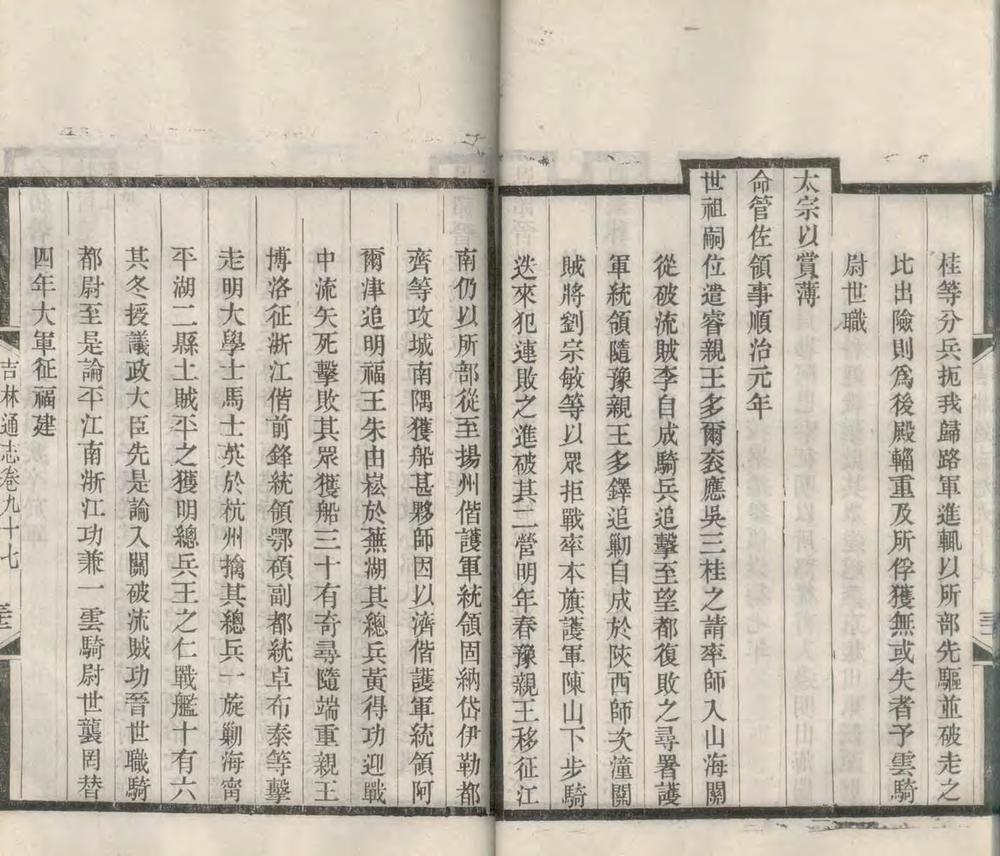 桂等分兵扼我歸路軍進輒以所部先驅並破走之
比出險則爲後殿輜重及所俘獲無或失者予雲騎
尉世職
太宗以賞薄
命管佐領事順治元年
世祖嗣位遣睿親王多爾袞應吳三桂之請率師入山海關
從破流賊李自成騎兵追擊至望都復敗之尋署護
軍統領隨豫親王多鐸追勦自成於陝西師次潼關
賊將劉宗敏等以眾拒戰率本旗護軍陳山下步騎
迭來犯連敗之進破其二營明年春豫親王移征江
南仍以所部從至揚州偕護軍統領固納岱伊勒都
齊等攻城南隅獲船甚夥師因以濟偕護軍統領阿
爾津追明福王朱由崧於蕪湖其總兵黃得功迎戰
中流矢死擊敗其眾獲船三十有奇尋隨端重親王
博洛征浙江偕前鋒統領鄂碩副都統卓布泰等擊
走明大學士馬士英於杭州擒其總兵一旋勦海甯
平湖二縣土賊平之獲明總兵王之仁戰艦十有六
其冬授議政大臣先是論入關破流賊功晉世職騎
都尉至是論平江南浙江功兼一雲騎尉世襲罔替
四年大軍征福建
吉林通志卷九十七